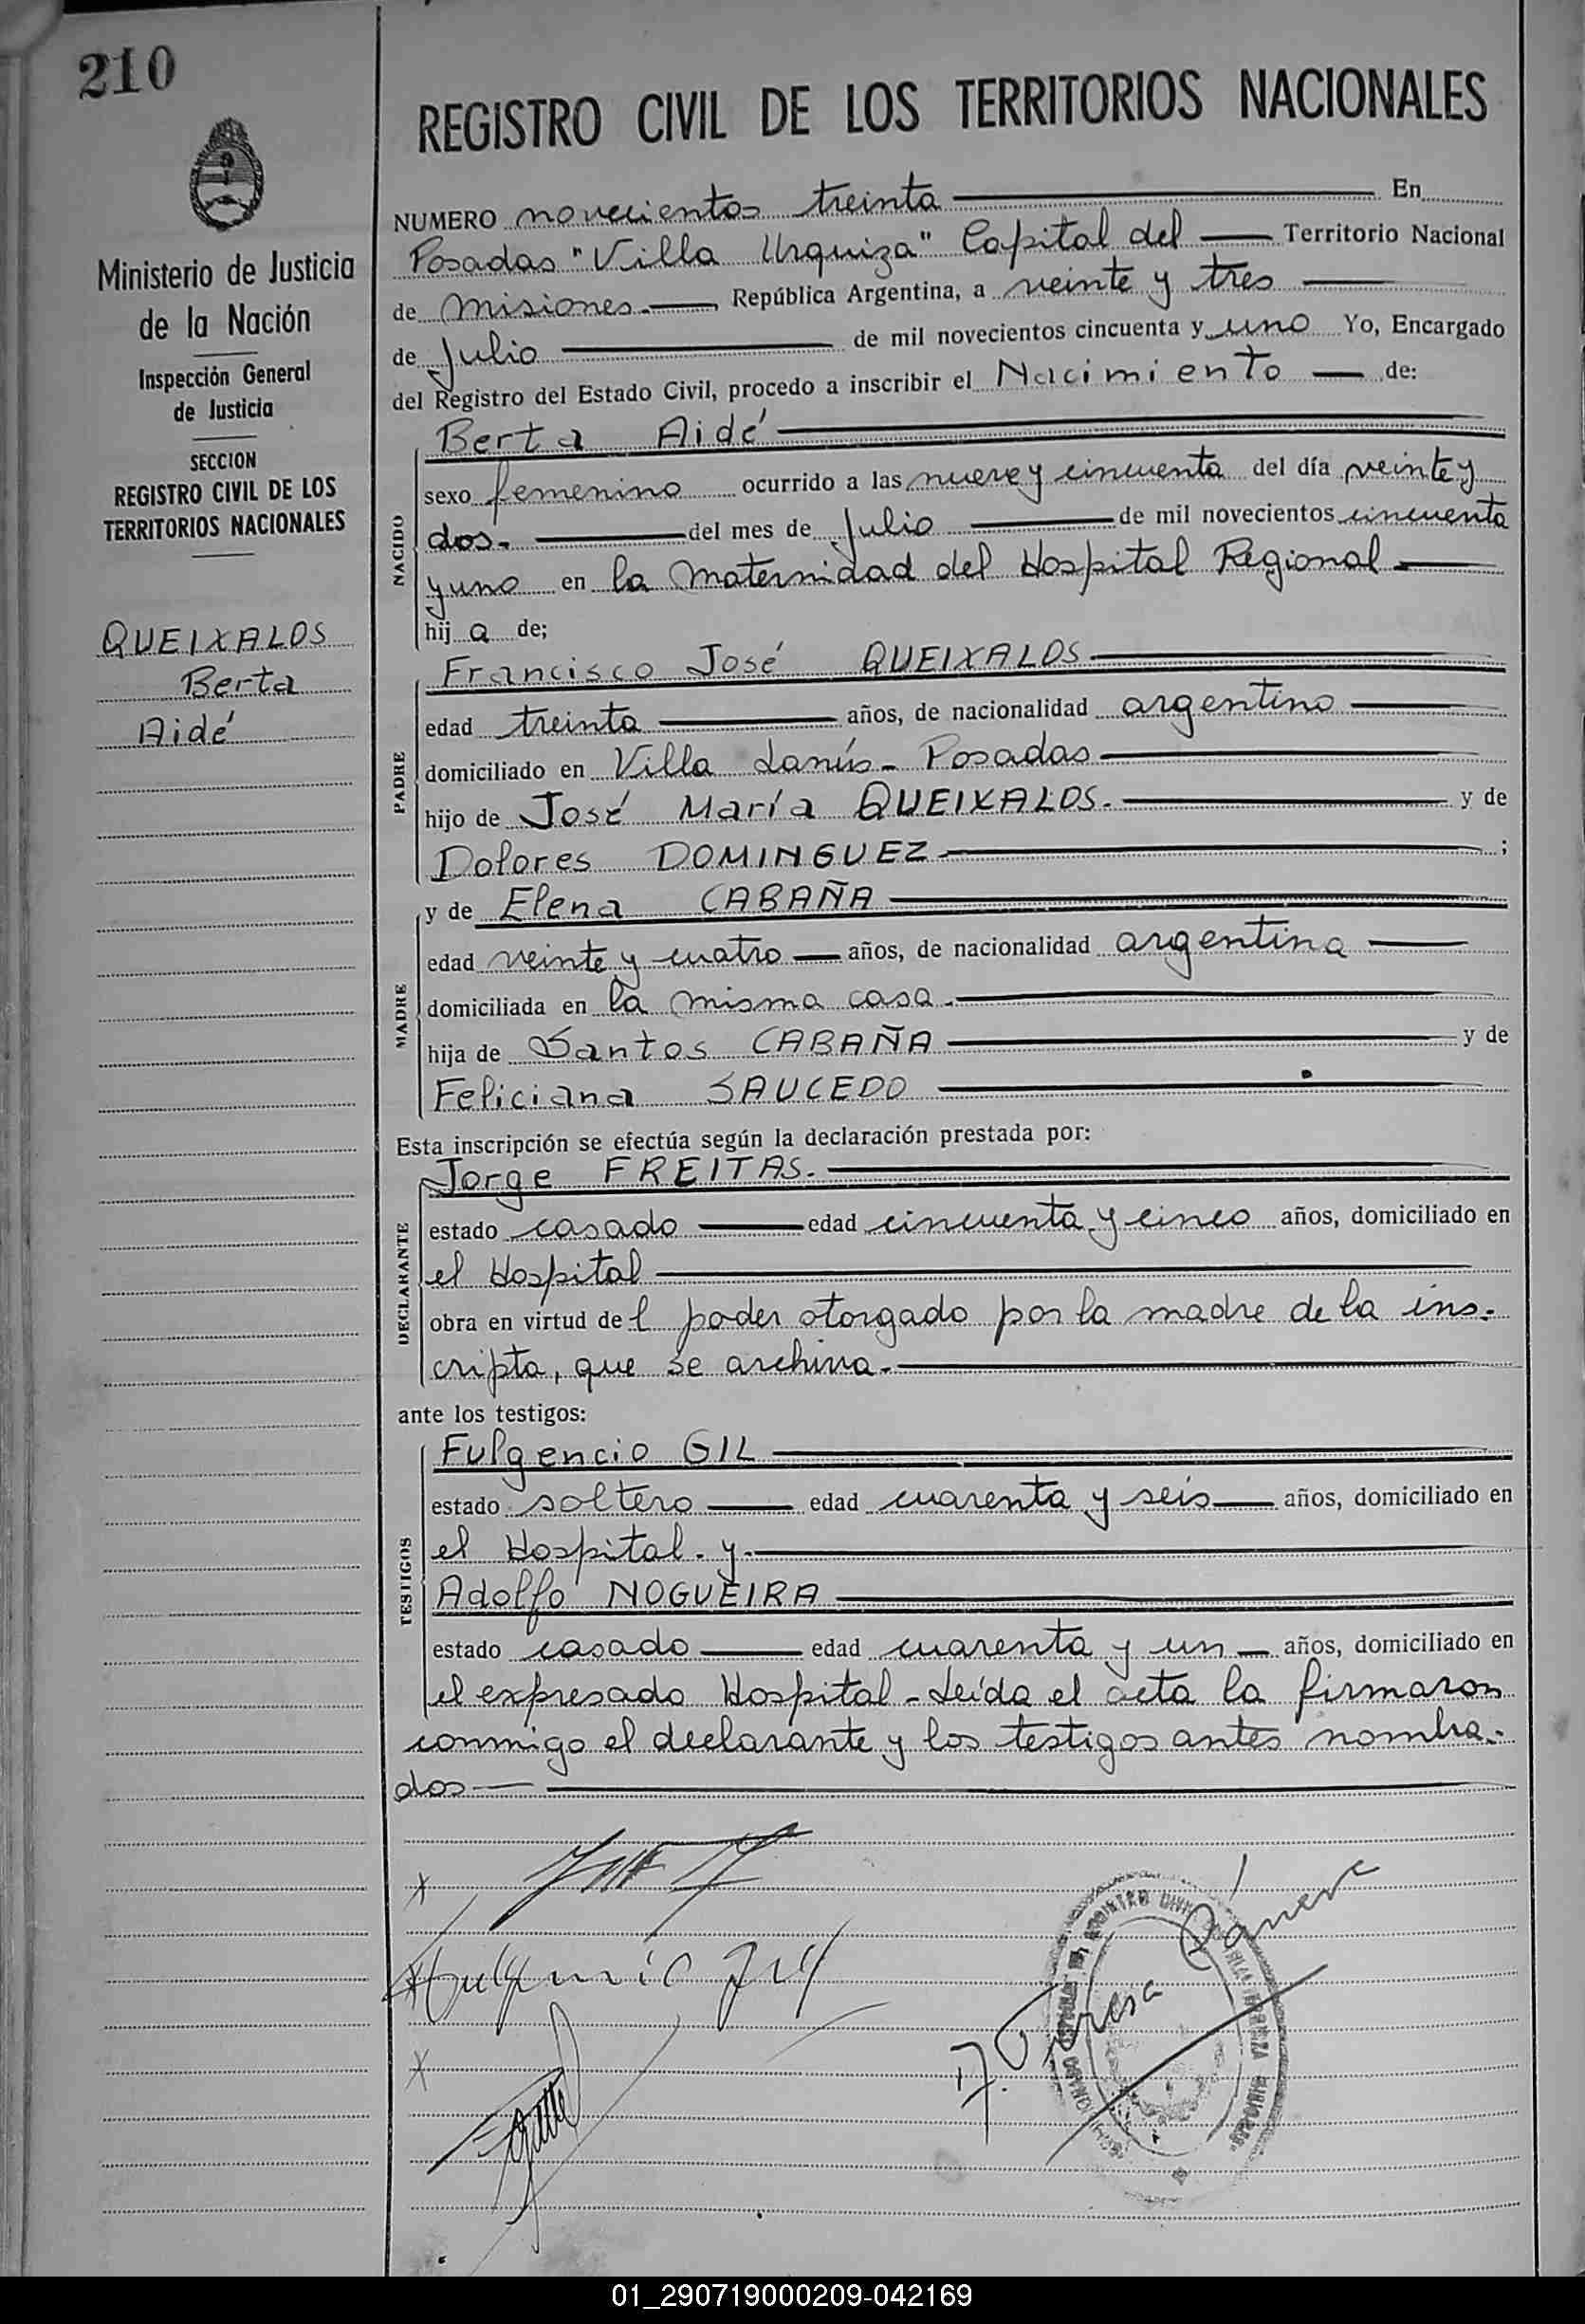 210
Ministerio de Justicia
de la Nación
Inspección General
de Justicia
SECCION
REGISTRO CIVIL DE LOS
TERRITORIOS NACIONALES
QUEIXALOS
Berta
Aidé
REGISTRO CIVIL DE LOS TERRITORIOS NACIONALES
NUMERO novecientos treinta En
Posadas "Villa Urquiza" Capital del Territorio Nacional
de Misiones.-, República Argentina, a veinte y tres
de Julio de mil novecientos cincuenta y uno Yo, Encargado
del Registro del Estado Civil, procedo a inscribir el Nacimiento de:
NACIDO
Berta Aidé
sexo femenino ocurrido a las nueve y cincuenta del día veinte y
dos.- del mes de Julio de mil novecientos cincuenta
y uno en la Maternidad del Hospital Regional
hij a de;
PADRE
Francisco José QUEIXALOS
edad treinta años, de nacionalidad argentino
domiciliado en Villa Lanús - Posadas
hijo de José María QUEIXALOS.- y de
Dolores DOMINGUEZ ;
MADRE
y de Elena CABAÑA
edad veinte y cuatro años, de nacionalidad argentina
domiciliada en la misma casa.-
hija de Santos CABAÑA y de
Feliciana SAUCEDO
Esta inscripción se efectúa según la declaración prestada por:
DECLARANTE
Jorge FREITAS.-
estado casado edad cincuenta y cinco años, domiciliado en
el Hospital
obra en virtud de l poder otorgado por la madre de la ins-
cripta, que se archiva.-
ante los testigos:
TESTIGOS
Fulgencio GIL
estado soltero edad cuarenta y seis años, domiciliado en
el Hospital. y.-
Adolfo NOGUEIRA
estado casado edad cuarenta y un años, domiciliado en
el expresado Hospital - Leída el acta la firmaron
conmigo el declarante y los testigos antes nombra-
dos
Fulgencio Gil
Teresa
01_290719000209-042169